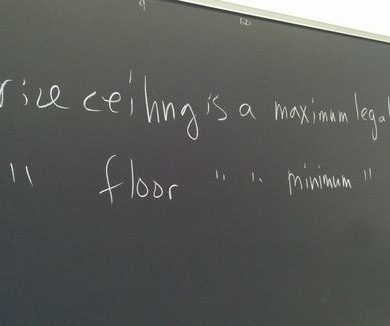 rice ceiling is a maximum legal
" floor " " minimum "